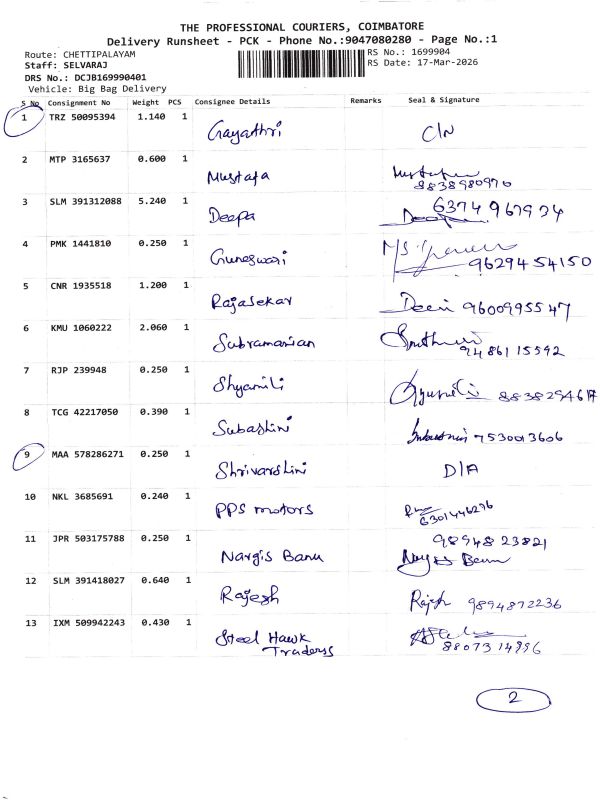 THE PROFESSIONAL COURIERS, COIMBATORE
Delivery Runsheet - PCK - Phone No.:9047080280 - Page No.:1
Route: CHETTIPALAYAM
RS No.: 1699904
Staff: SELVARAJ
RS Date: 17-Mar-2026
DRS No.: DCJB169990401
Vehicle: Big Bag Delivery
S No Consignment No Weight PCS Consignee Details Remarks Seal & Signature
1 TRZ 50095394 1.140 1 Gayathri C/N
2 MTP 3165637 0.600 1 Mustafa
8838980970
3 SLM 391312088 5.240 1 Deepa 6374967934
4 PMK 1441810 0.250 1 Guneswari
9629454150
5 CNR 1935518 1.200 1 Rajasekar 9600995547
6 KMU 1060222 2.060 1 Subramanian
9486115592
7 RJP 239948 0.250 1 Shyamili
8 TCG 42217050 0.390 1 Subashini 7530013606
9 MAA 578286271 0.250 1 Shrivarshini D/A
10 NKL 3685691 0.240 1 PPS motors
6301446296
11 JPR 503175788 0.250 1 Nargis Banu 9894823821
12 SLM 391418027 0.640 1 Rajesh Rajesh 9894872236
13 IXM 509942243 0.430 1 Steel Hawk
Traderss 8807314996
2